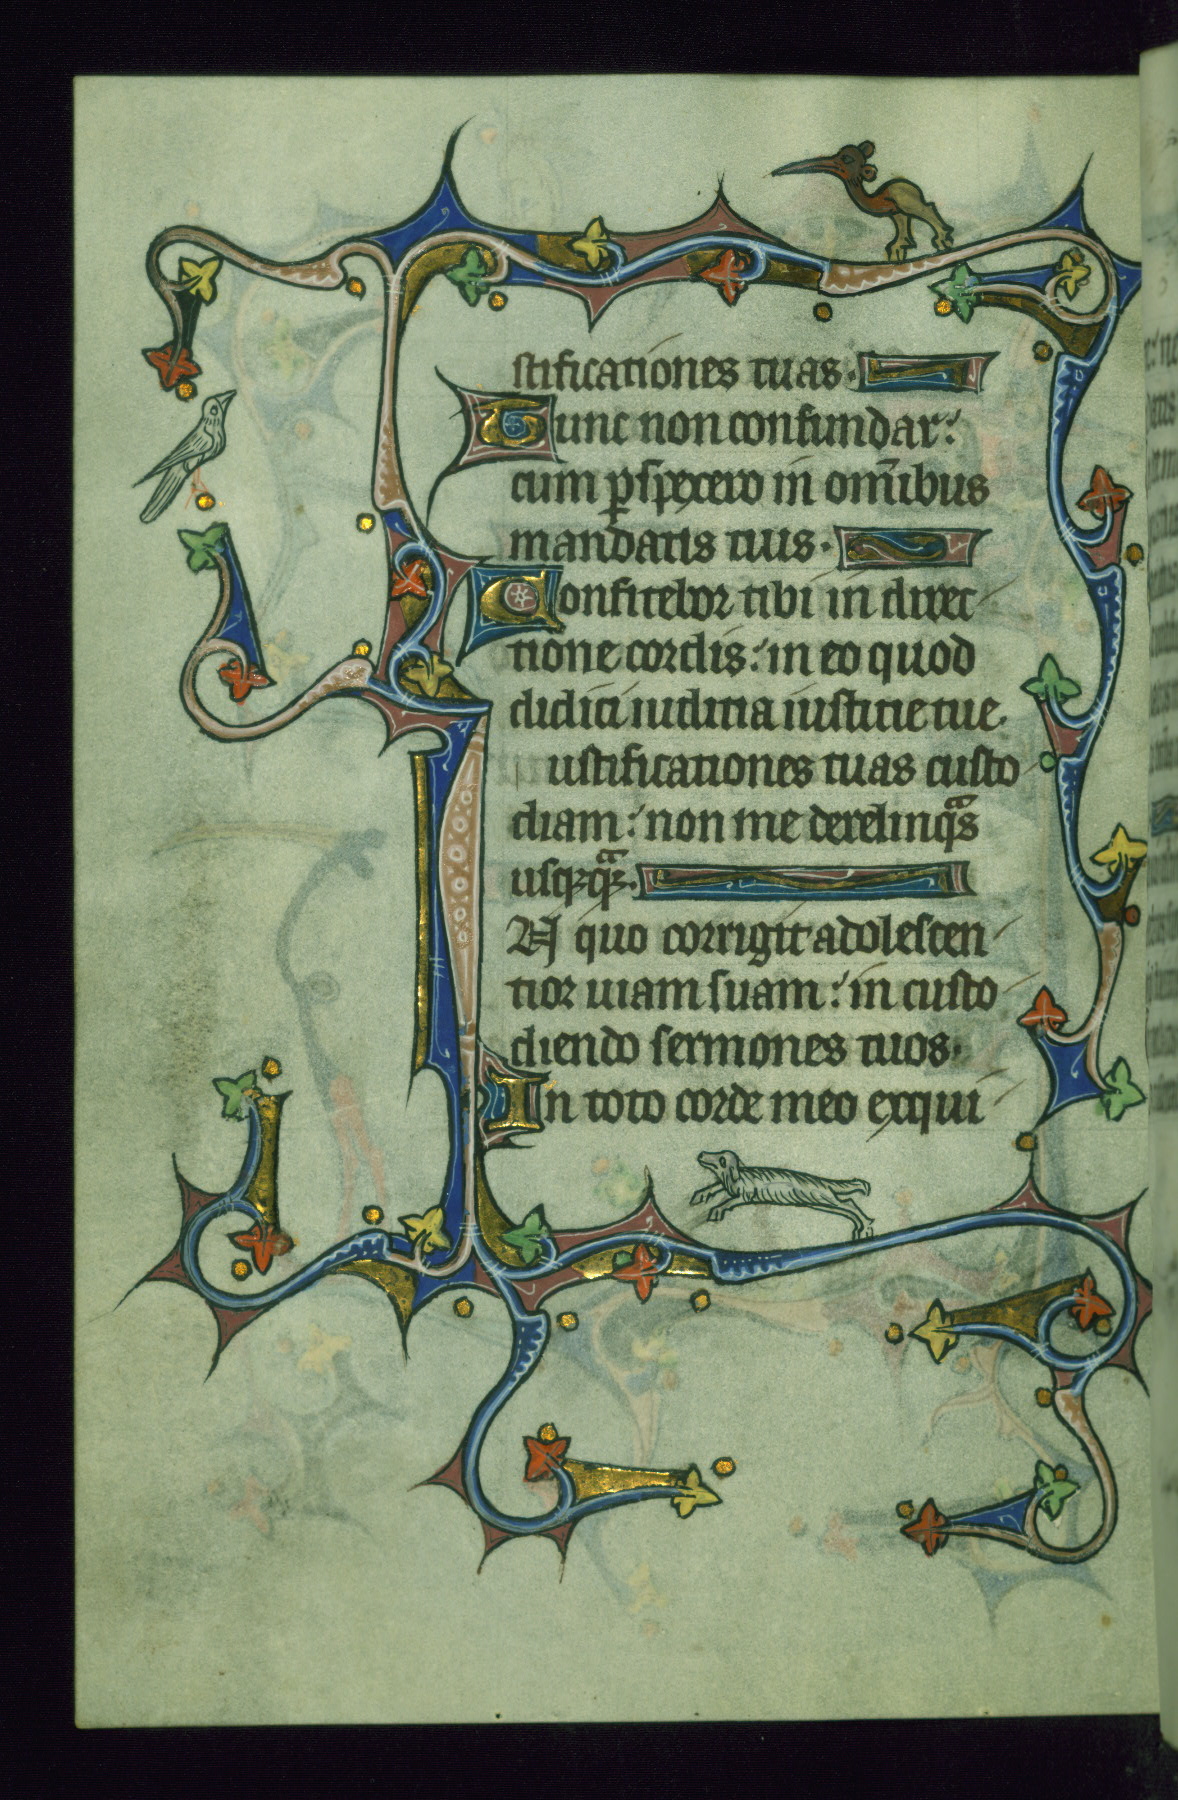 stificationes tuas.
Tunc non confundar:
cum pspexero in om̅ibus
mandatis tuis.
Confitebor tibi in direc
tione cordis: in eo quod
didici iudicia iusticie tue.
Iustificationes tuas custo
diam: non me derelinqᵃs
usqꝫqᵃqꝫ.
In quo corrigit adolescen
tior uiam suam: in custo
diendo sermones tuos.
In toto corde meo exqui